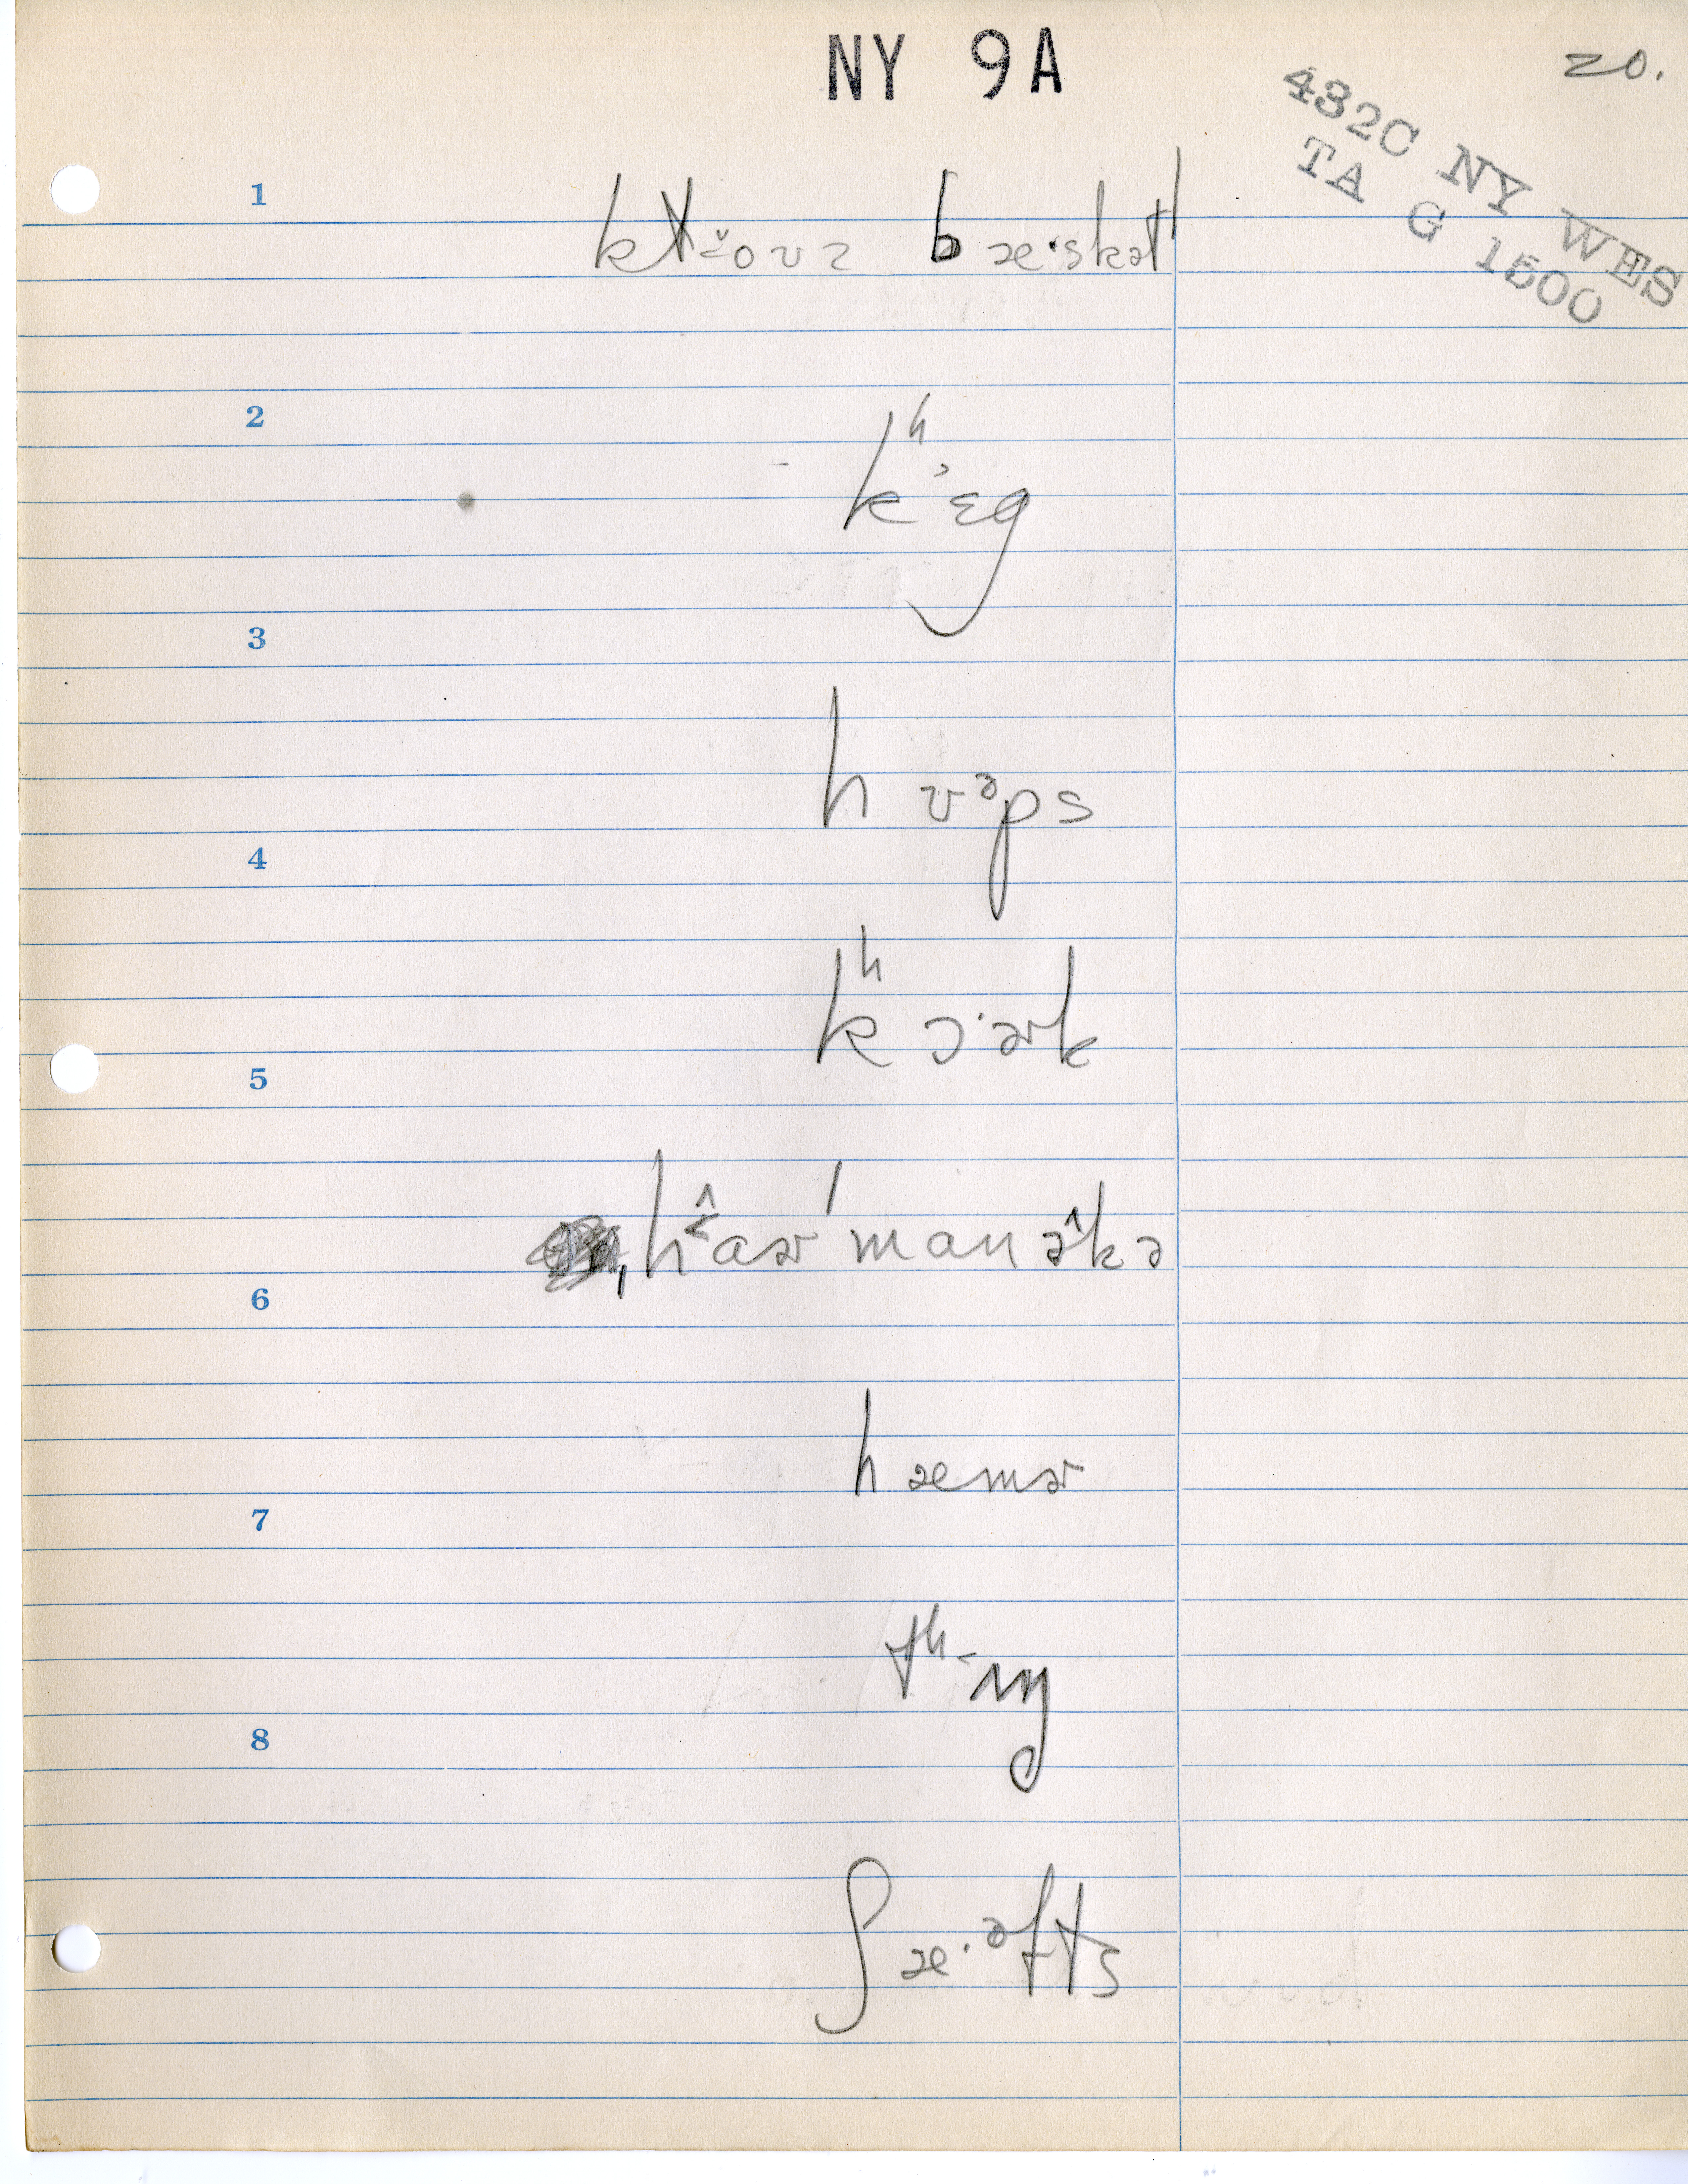 NY 9A
20.
432C NY WES
TA G 1500
1
bæ·skət
2
kʰ’ɛg
3
hʊᵊps
4
kʰɔ·ɚk
5
ˌhaɚˈmanəkə
6
hæmɚ
7
8
ʃæ·ᵊfts